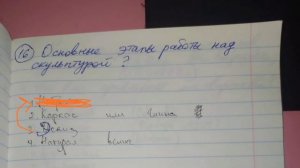 16 Основные этапы работы над
скульптурой?
1.
2. Каркас или глина
3. Эскиз
4. Второй